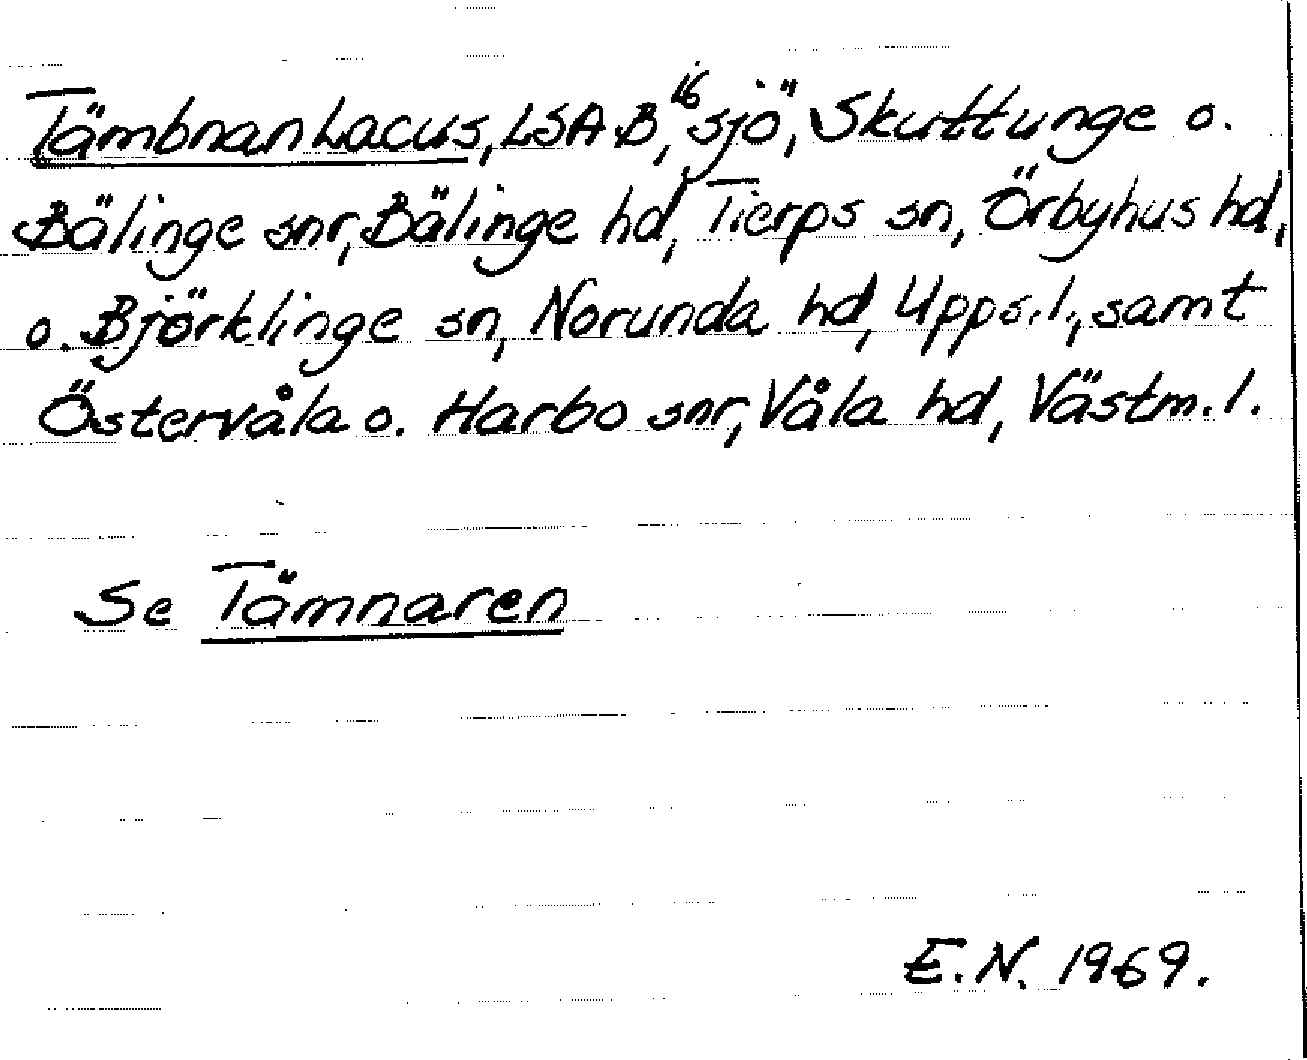 Tämbnan Lacus, LSA B 16, "sjö", Skuttunge o.
Bälinge snr, Bälinge hd, Tierps sn, Örbyhus hd,
o. Björklinge sn, Norunda hd, Upps.l., samt
Östervåla o. Harbo snr, Våla hd, Västm.l.
Se Tämnaren
E.N. 1969.